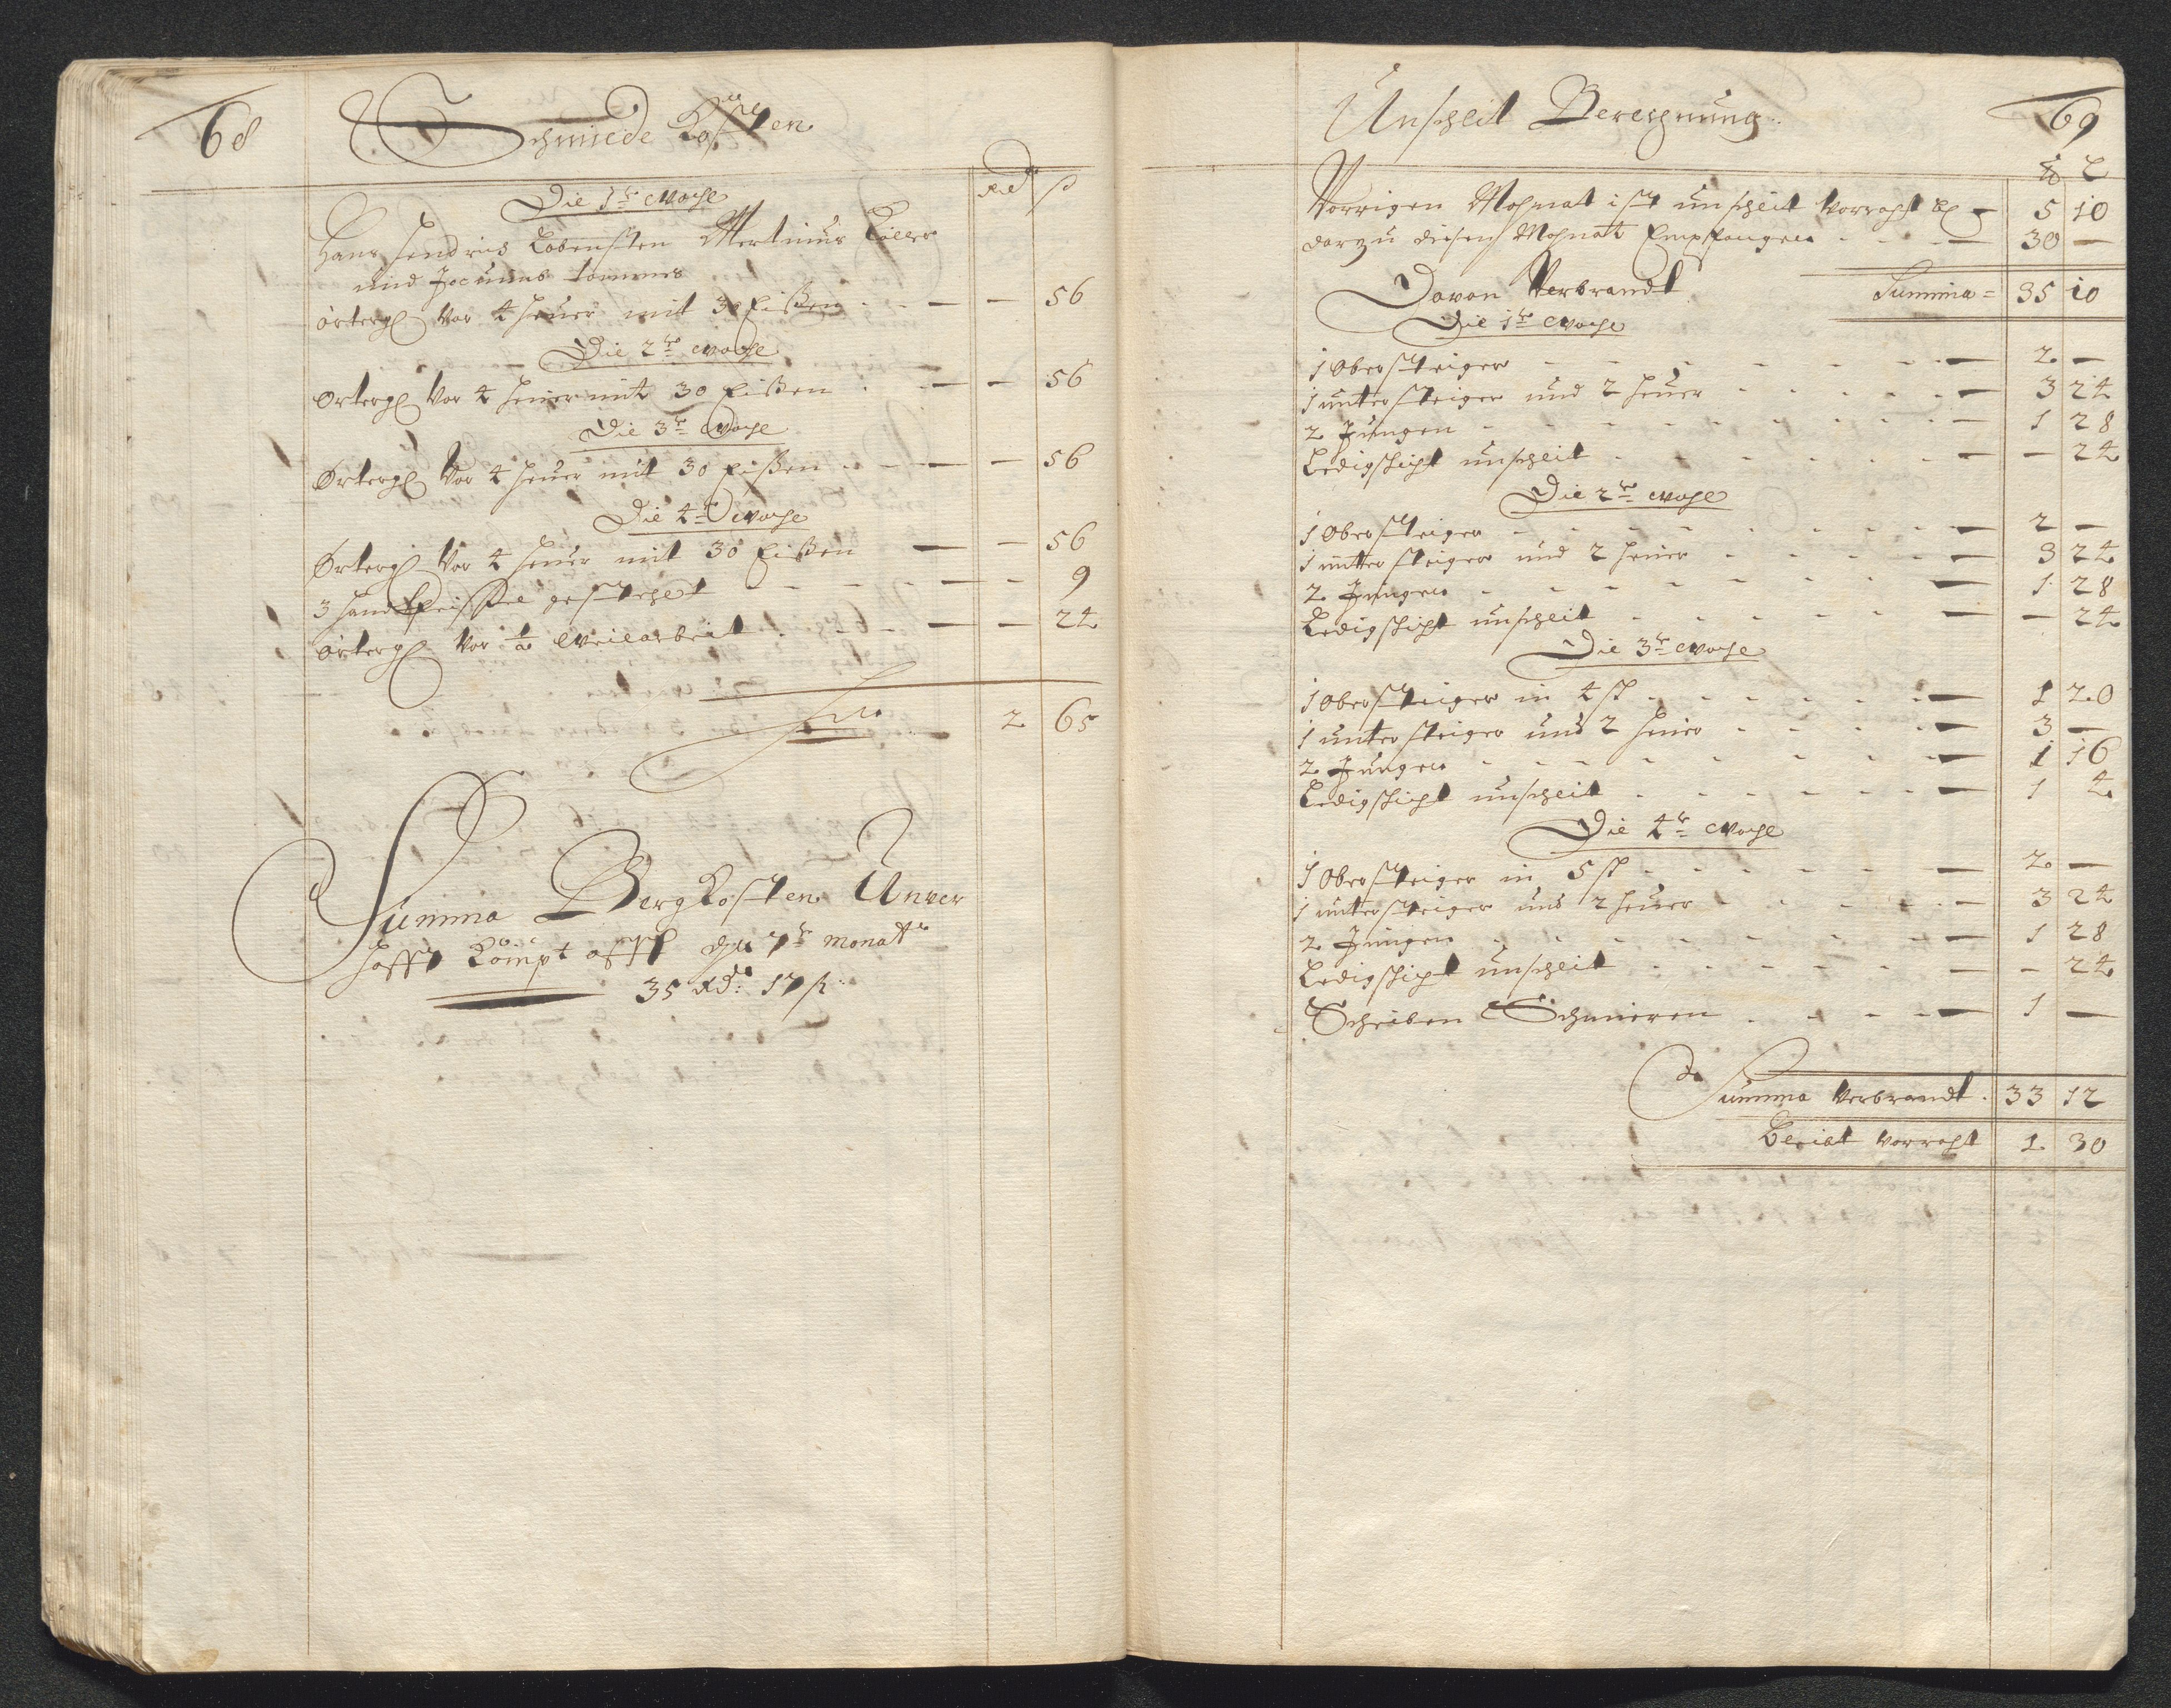 68
Schmiede Kosten
Rd ß
Die 1te Woche
Hans Hendrich Lobensten Mertinus Köller
und Jocimus Tommes
örtergl vor 4 heuer mit 30 Eißen — — 56
Die 2te Woche
örtergl vor 4 heuer mit 30 Eißen — — 56
Die 3te Woche
örtergl vor 4 heuer mit 30 Eißen — — 56
Die 4te Woche
örtergl vor 4 heuer mit 30 Eißen — — 56
3 handtfeistel gestehelt — — 9
örtergl vor weilarbeit — — 24
2 65
Summa Berg Kosten Unver
hofft kömpt auff den 7te Monatt
35 Rd: 17 ß
69
Unschleit Berechnung
℔ L
Vorrigen Mohnat ist unschleit vorraht bl — 5 10
darzu diesen Mohnat Empfangen — 30 —
Summa = 35 10
Davon Verbrandt
Die 1te Woche
1 Obersteiger — 2 —
1 untersteiger und 2 heuer — 3 24
2 Jungen — 1 28
Ledigschicht unschleit — — 24
Die 2te Woche
1 Obersteiger — 2 —
1 untersteiger und 2 heuer — 3 24
2 Jungen — 1 28
Ledigschicht unschleit — — 24
Die 3te Woche
1 Obersteiger in 4 st — 1 20
1 untersteiger und 2 heuer — 3 —
2 Jungen — 1 16
Ledigschicht unschleit — 1 4
Die 4te Woche
1 Obersteiger in 5 st — 2 —
1 untersteiger und 2 heuer — 3 24
2 Jungen — 1 28
Ledigschicht unschleit — — 24
Scheiben Schmieren — 1 —
Summa Verbrandt 33 12
Bleibt vorraht 1 30